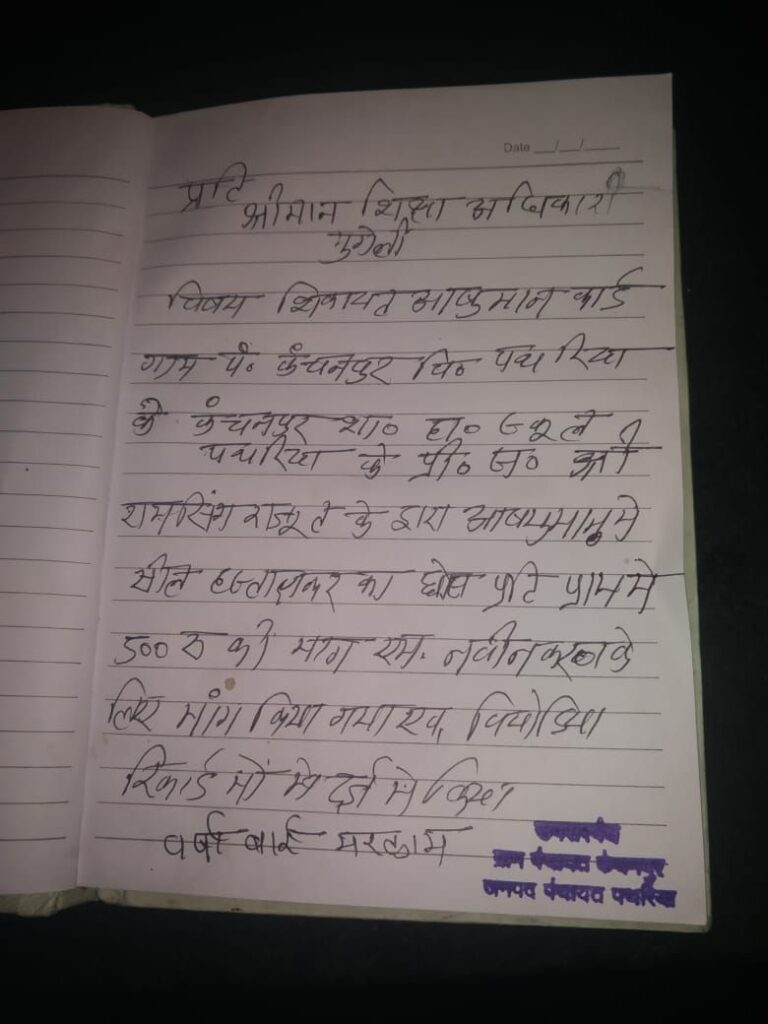 Date __/__/____
प्रति
श्रीमान शिक्षा अधिकारी
मुगेली
विषय शिकायत आयुमान कार्ड
ग्राम पं० कंचनपुर वि० पथरिया
के कंचनपुर शा० हा० स्कूल
पथरिया के प्री० श्री
रामसिंग राजपूत के द्वारा
सील हस्ताक्षर का प्रति फ्राम मे
500 रु की मांग एम. नवीनकरण के
लिए मांग किया गया एवं विडियो
रिकार्ड मो मे दर्ज मे किया
वर्षा बाई मरकाम
उपसरपंच
ग्राम पंचायत कंचनपुर
जनपद पंचायत पथरिया